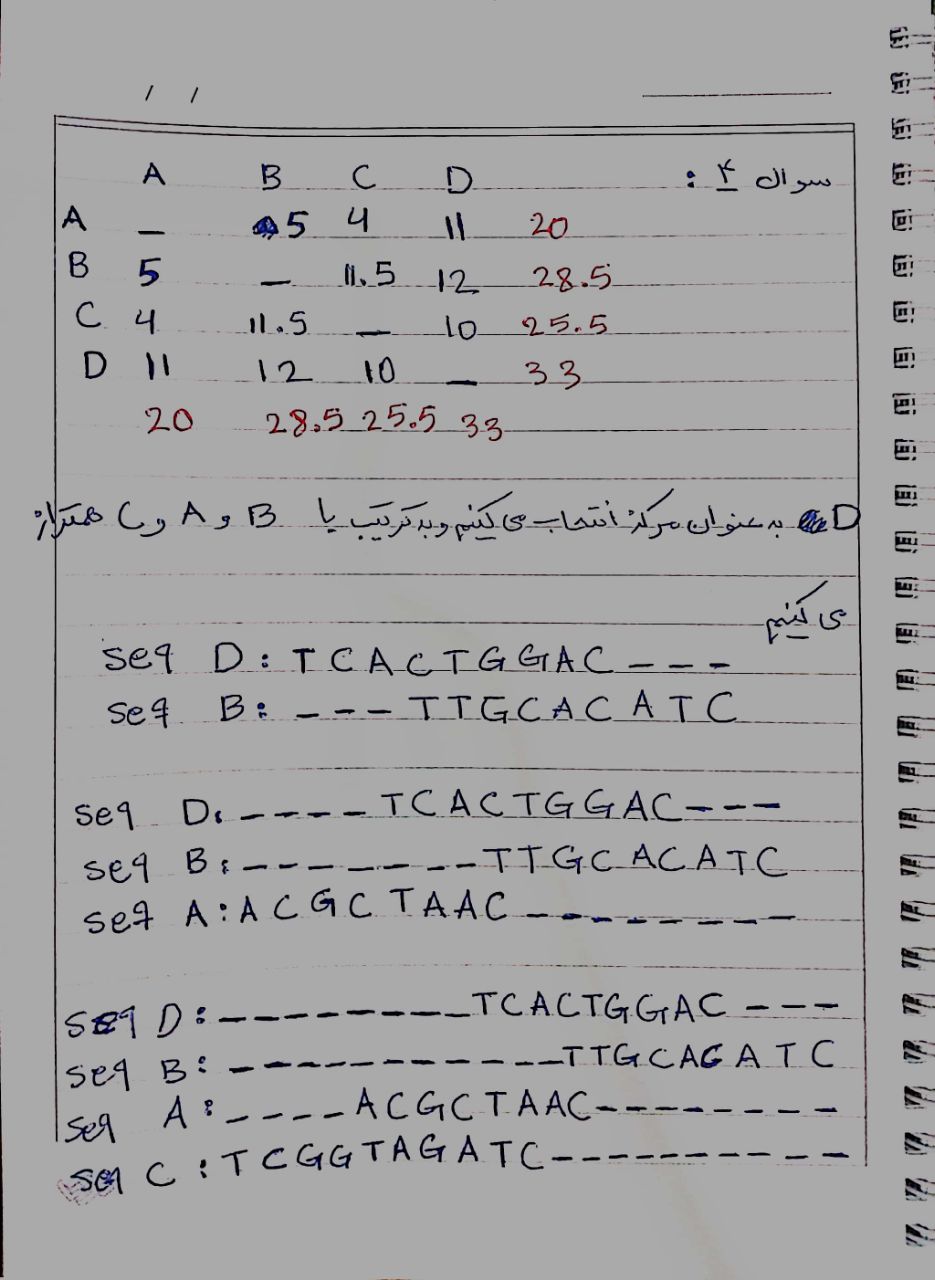 / /
سوال ۴ :
A B C D
A – 5 4 11 20
B 5 – 11.5 12 28.5
C 4 11.5 – 10 25.5
D 11 12 10 – 33
20 28.5 25.5 33
D به عنوان مرکز انتخاب می کنیم و به ترتیب با B و A و C همتراز
می کنیم
seq D: TCACTGGAC---
seq B: ---TTGCACATC
seq D: ----TCACTGGAC---
seq B: -------TTGCACATC
seq A: ACGCTAAC--------
seq D: --------TCACTGGAC---
seq B: -----------TTGCACATC
seq A: ----ACGCTAAC--------
seq C: TCGGTAGATC----------